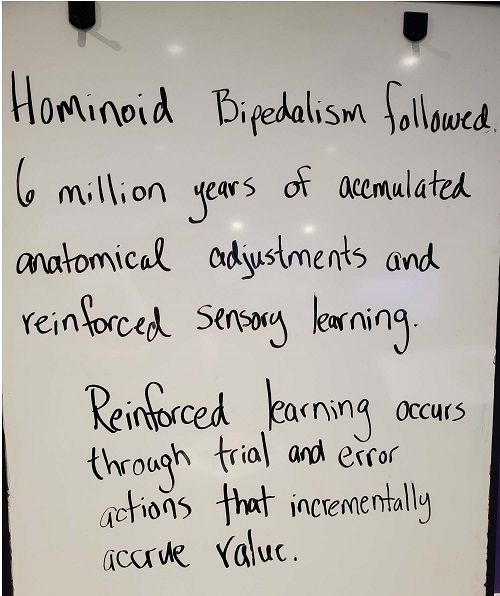 Hominoid Bipedalism followed.
6 million years of accmulated
anatomical adjustments and
reinforced sensory learning.
Reinforced learning occurs
through trial and error
actions that incrementally
accrue value.